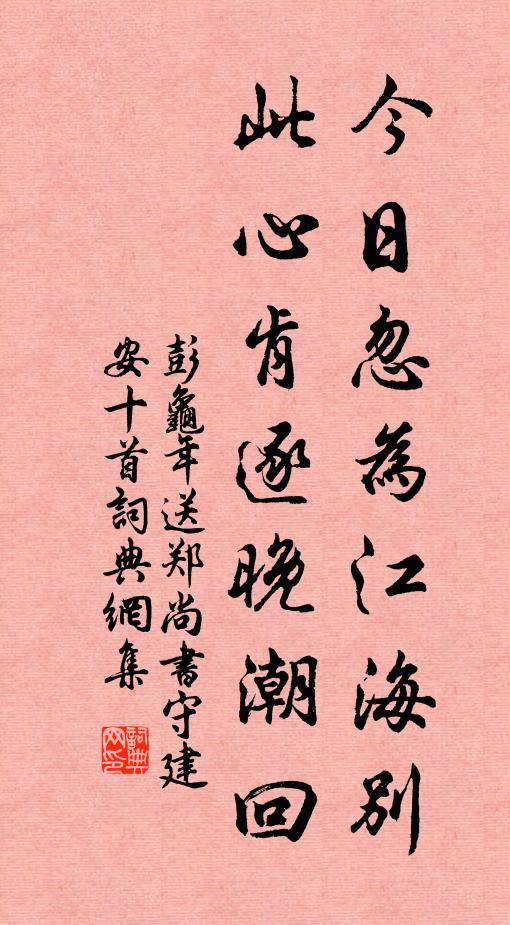 今日忽為江海別
此心肯逐晚潮回
彭龜年送郑尚書守建
安十首詞典網集
詞典
网印